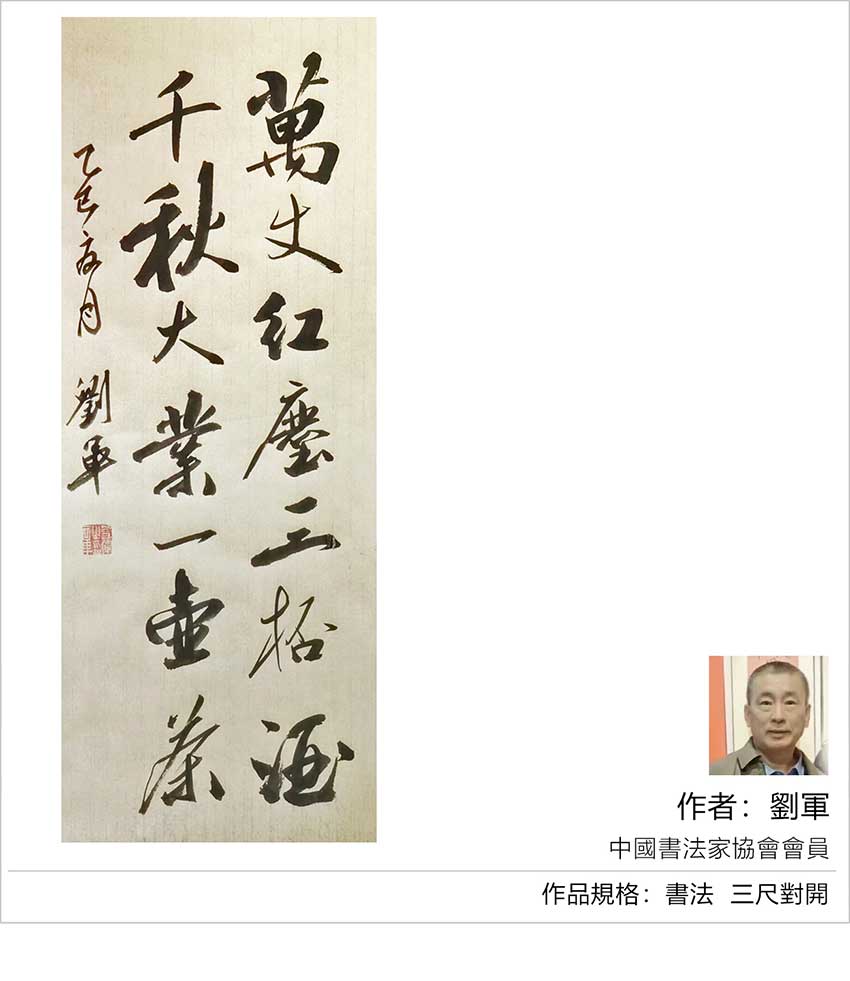 萬丈紅塵三杯酒
千秋大業一壺茶
乙巳 月 劉軍
作者：劉軍
中國書法家協會會員
作品規格：書法 三尺對開